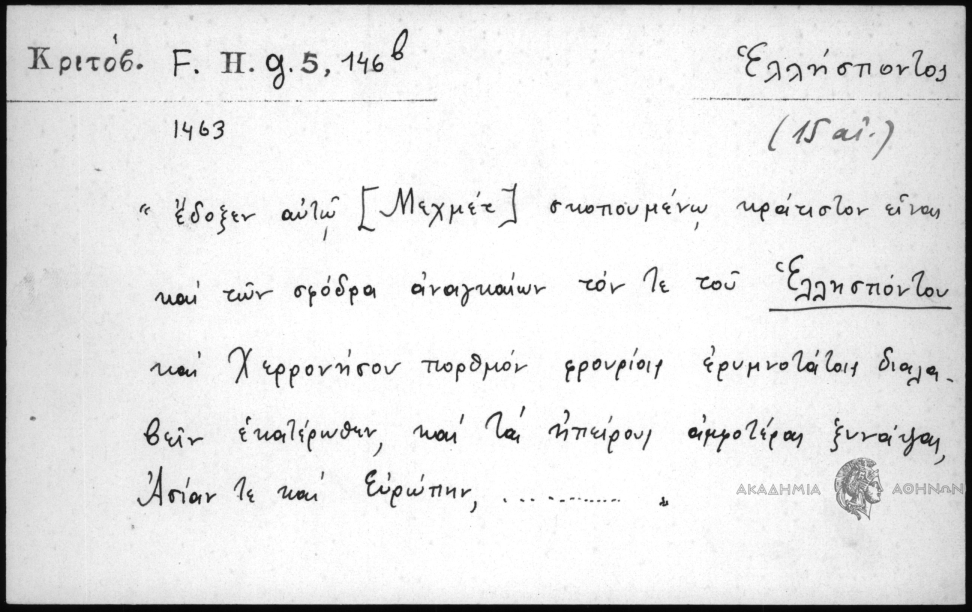 Κριτόβ. F. H. g. 5, 146β Ἑλλήσποντος
1463 (15 αἰ.)
“ ἔδοξεν αὐτῷ [Μεχμέτ] σκοπουμένῳ κράτιστον εἶναι
καί τῶν σφόδρα ἀναγκαίων τόν τε τοῦ Ἑλλησπόντου
καί Χερρονήσου πορθμόν φρουρίοις ἐρυμνοτάτοις διαλα-
βεῖν ἑκατέρωθεν, καί τά ἠπείρους ἀμφοτέρας ξυνάψαι,
Ἀσίαν τε καί Εὐρώπην, ................ „
ΑΚΑΔΗΜΙΑ ΑΘΗΝΩΝ